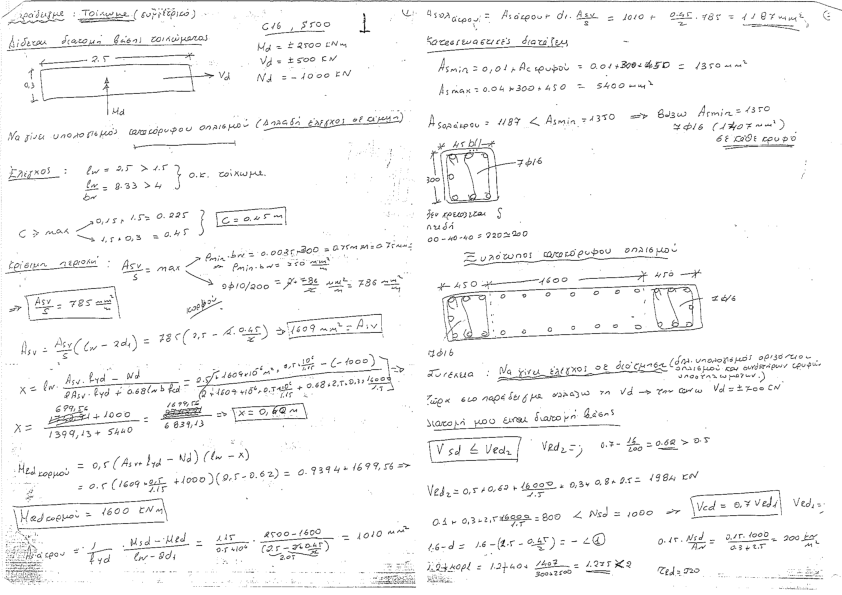 Παράδειγμα : Τοίχωμα (συμμετρικό)
Δίδεται διατομή βάσης τοιχώματος
C16 , S500
Md = ± 2500 KNm
Vd = ± 500 KN
Nd = - 1000 KN
2.5
0.3
Vd
Md
Να γίνει υπολογισμός κατακόρυφου οπλισμού (Δηλαδή έλεγχος σε κάμψη)
Έλεγχος : lw = 2,5 > 1.5
lw/bw = 8.33 > 4
ο.κ. τοίχωμα.
C ≥ max
0,15 * 1.5 = 0.225
1.5 * 0,3 = 0.45
C = 0.45 m
Κρίσιμη περιοχή : Asv/s = max
ρmin · bw = 0.0025 * 300
ρmin · bw = 250 mm²/m
2Φ10/200 = 786 mm²/m
κορμού
=> Asv/s = 785 mm²/m
Asv = Asv/s (lw - 2d1) = 785 (2,5 - 2·0.45/2) => 1609 mm² = Asv
x = lw · (Asv · fyd - Nd) / (2Asv · fyd + 0.68 lw b fcd)
x = (699,56 + 1000) / (1399,13 + 5440) = 1699,56 / 6839,13 => x = 0,62 m
MRd κορμού = 0,5 (Asv · fyd - Nd) (lw - x)
= 0.5 (1609 * 0.5/1.15 + 1000) (2,5 - 0.62) = 0.9394 * 1699,56 =>
MRd κορμού = 1600 KNm
As άκρου = 1/fyd · (Msd - MRd)/(lw - 2d1) = 1.15/(0.5*10⁴) · (2500 - 1600)/(2.5 - 2·0.45/2) = 1010 mm²
2.05
As ολάκρου = As άκρου + d1 · Asv/s = 1010 + 0.45/2 · 785 = 1187 mm²
Κατασκευαστικές διατάξεις
Asmin = 0,01 * Ac κρυφού = 0.01 * 300 * 450 = 1350 mm²
Asmax = 0.04 * 300 * 450 = 5400 mm²
As ολάκρου = 1187 < Asmin = 1350 => Βάζω Asmin = 1350
7Φ16 (1407 mm²)
σε κάθε κρυφό
450
7Φ16
300
Δεν χρειάζεται S
πεδη
Ξυλότυπος κατακόρυφου οπλισμού
450
1600
450
7Φ16
7Φ16
Συνέχεια : Να γίνει έλεγχος σε διάτμηση (δηλ. υπολογισμός οριζόντιου
οπλισμού και συνδετήρων κρυφών
υποστυλωμάτων.)
Τώρα στο παράδειγμα αλλάζω τη Vd → την κάνω Vd = ± 700 KN
Διατομή μου είναι διατομή βάσης
Vsd ≤ VRd2
VRd2 = ;
0.7 - 16/200 = 0.62 > 0.5
VRd2 = 0,5 * 0,62 * 16000/1.5 * 0,3 * 0.8 * 2.5 = 1984 KN
0.1 * 0.3 * 2,5 * 16000/1.5 = 800 < Nsd = 1000 =>
Vcd = 0.7 VRd1
VRd1 = ;
1.6 - d = 1.6 - (2.5 - 0.45/2) = - < 1
0.15 · Nsd/Aw = 0.15 · 1000 / (0.3 * 2.5) = 200 KN/m²
1.2 + 40ρl = 1.2 + 40 * 1407/(300*2500) = 1.275